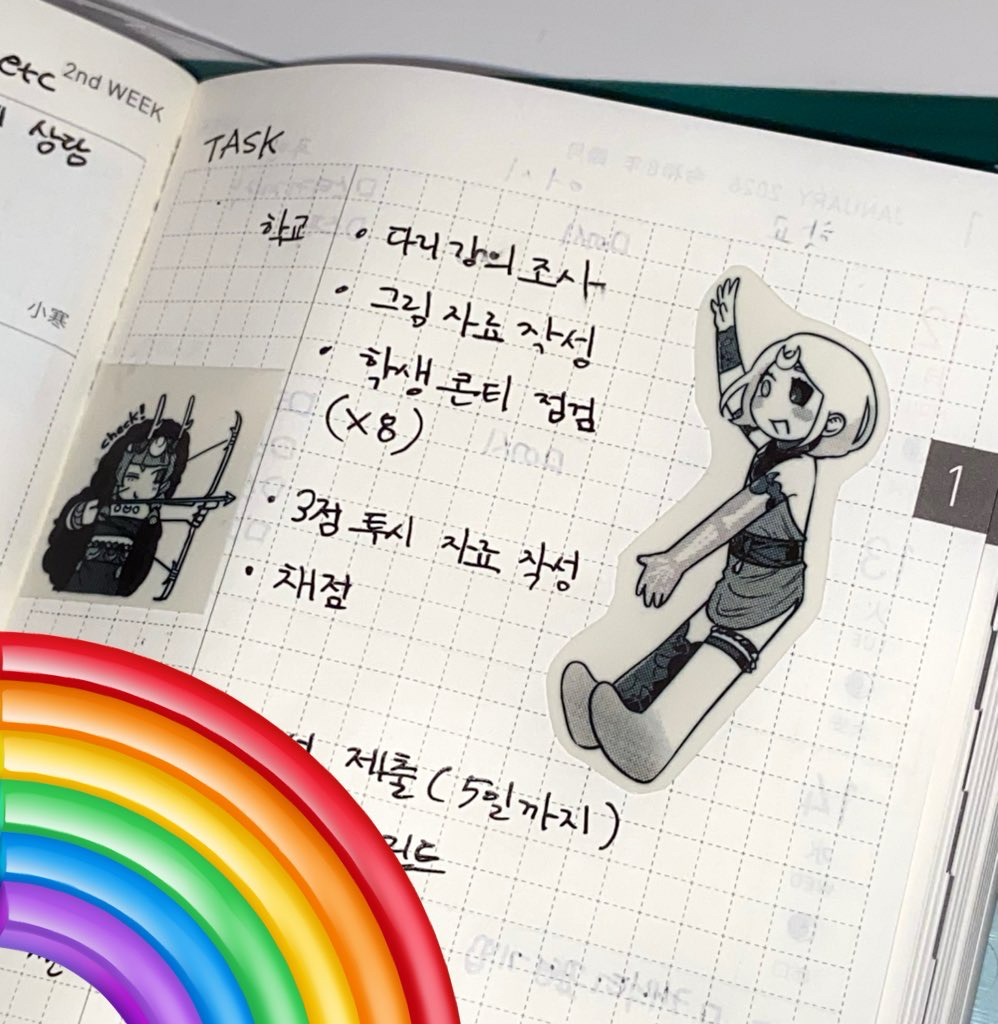 etc 2nd WEEK
상담
小寒
TASK
학교 • 다리 강의 조사
• 그림 자료 작성
• 학생 콘티 점검
(×8)
• 3점 투시 자료 작성
• 채점
check!
제출 (5일까지)
1